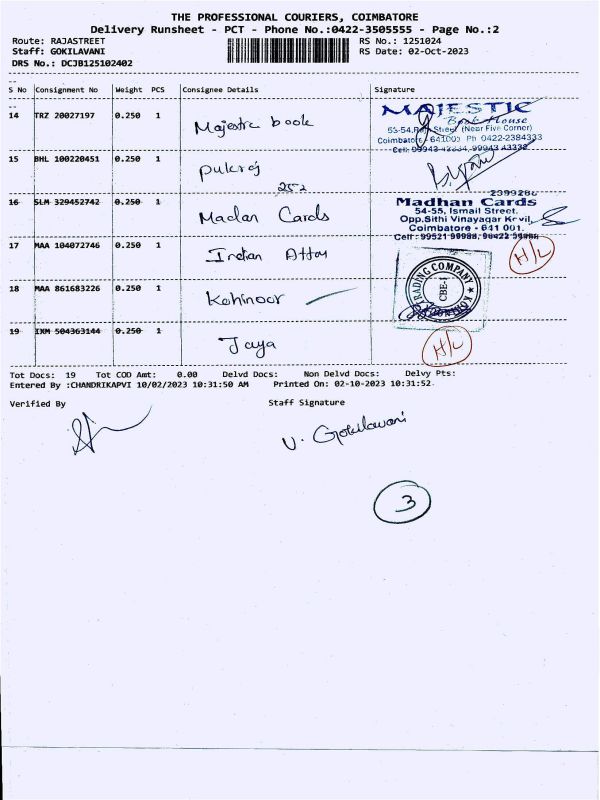 THE PROFESSIONAL COURIERS, COIMBATORE
Delivery Runsheet - PCT - Phone No.:0422-3505555 - Page No.:2
Route: RAJASTREET RS No.: 1251024
Staff: GOKILAVANI RS Date: 02-Oct-2023
DRS No.: DCJB125102402
S No Consignment No Weight PCS Consignee Details Signature
14 TRZ 20027197 0.250 1 Majestic book
MAJESTIC
Book House
53-54, Raja Street (Near Five Corner)
Coimbatore - 641001 Ph 0422-2384333
15 BHL 100220451 0.250 1 Pukraj
252
16 SLM 329452742 0.250 1 Madan Cards
2399286
Madhan Cards
54-55, Ismail Street,
Opp.Sithi Vinayagar Kovil,
Coimbatore - 641 001.
17 MAA 104072746 0.250 1 Indian Attar H/L
18 MAA 861683226 0.250 1 Kohinoor
TRADING COMPANY
CBE-1
19 IXM 504363144 0.250 1 Jaya H/L
Tot Docs: 19 Tot COD Amt: 0.00 Delvd Docs: Non Delvd Docs: Delvy Pts:
Entered By :CHANDRIKAPVI 10/02/2023 10:31:50 AM Printed On: 02-10-2023 10:31:52
Verified By Staff Signature
V. Gokilavani
3